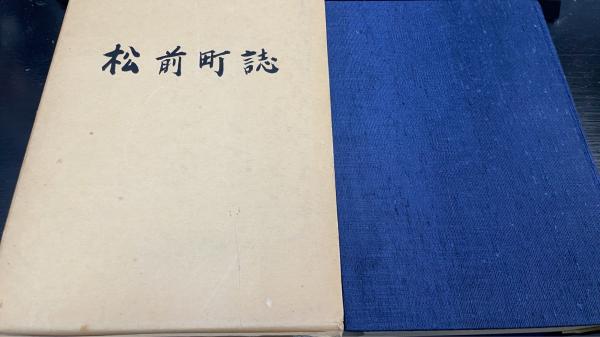 松前町誌